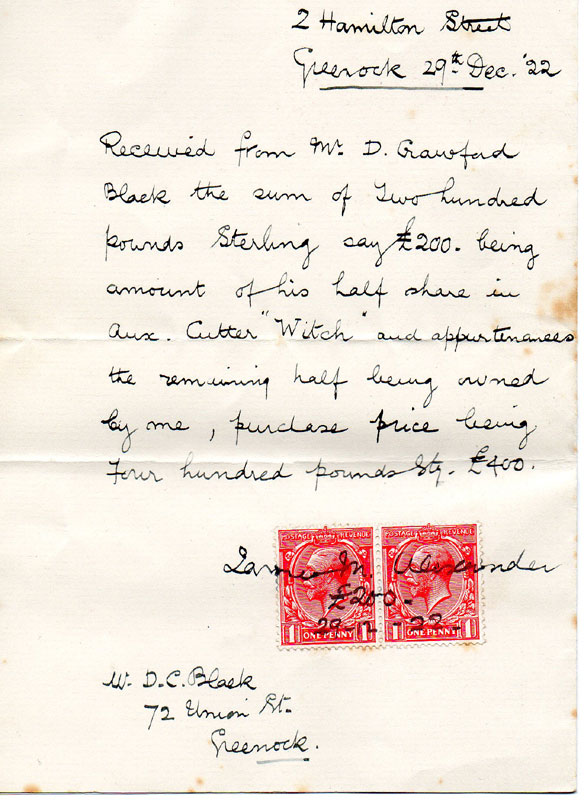 2 Hamilton Street
Greenock 29th Dec. '22
Received from Mr. D. Crawford
Black the sum of Two hundred
pounds Sterling say £200. being
amount of his half share in
Aux. Cutter "Witch" and appurtenances
the remaining half being owned
by me, purchase price being
Four hundred pounds Stg. £400.
POSTAGE REVENUE POSTAGE REVENUE
James M. Alexander
£200-
29-12-22.
1 ONE PENNY 1 1 ONE PENNY 1
Mr. D. C. Black
72 Union St.
Greenock.